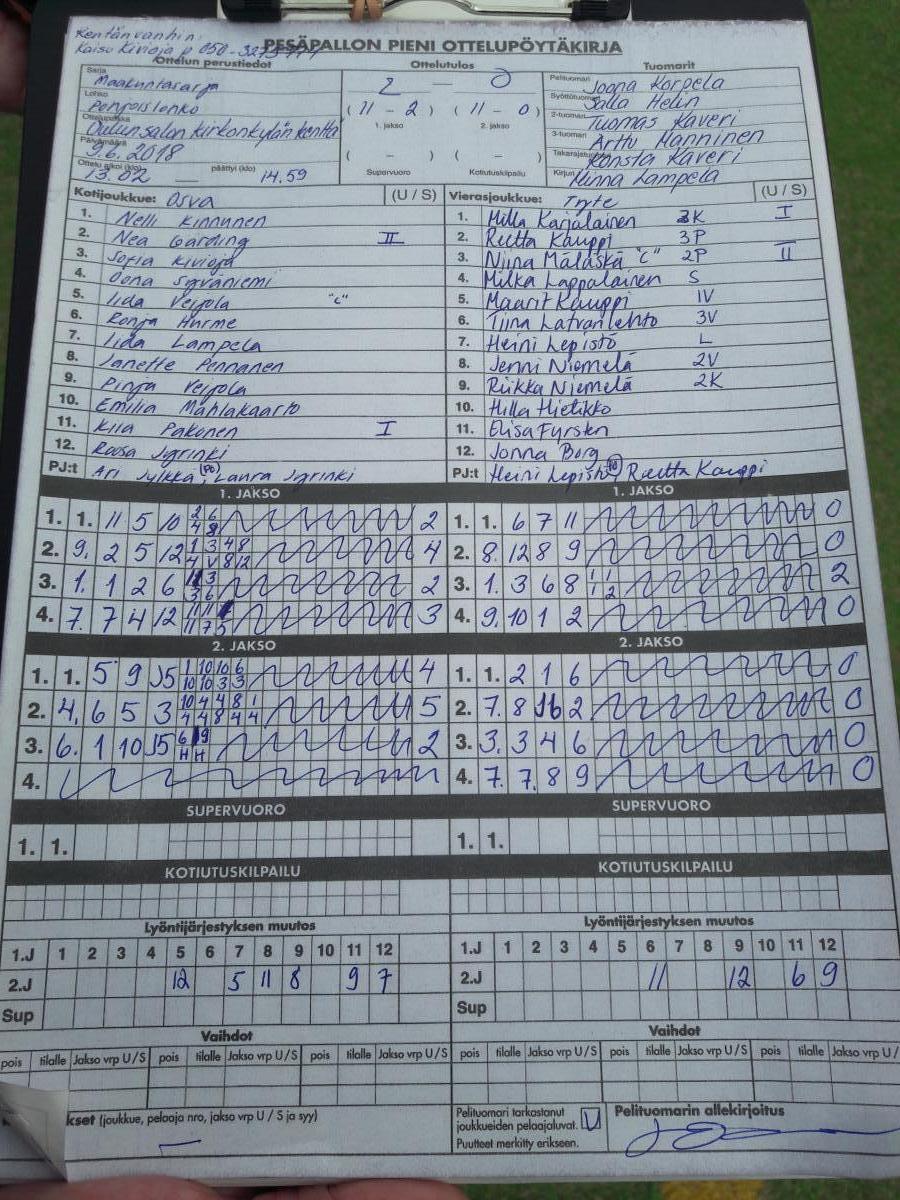 Kentänvanhin:
Kaisu Kivioja p 050-
PESÄPALLON PIENI OTTELUPÖYTÄKIRJA
Ottelun perustiedot Ottelutulos Tuomarit
Sarja Maakuntasarja 2 — 0 Pelituomari Joona Korpela
Lohko Pohjoislohko (11 - 2) (11 - 0) Syöttötuomari Salla Helin
Ottelupaikka Oulunsalon kirkonkylän kenttä 1. jakso 2. jakso 2-tuomari Tuomas Kaveri
Päivämäärä 9.6.2018 3-tuomari Arttu Manninen
( - ) ( - ) Takarajatuomari Konsta Kaveri
Ottelu alkoi (klo) 13.02 päättyi (klo) 14.59 Supervuoro Kotiutuskilpailu Kirjuri Minna Lampela
Kotijoukkue: Osva (U / S) Vierasjoukkue: Tyte (U / S)
1. Nelli Kinnunen 1. Milla Karjalainen 3K I
2. Nea Garding II 2. Reetta Kauppi 3P
3. Sofia Kivioja 3. Niina Mälaskä "C" 2P II
4. Oona Syväniemi 4. Milka Lappalainen S
5. Iida Veijola "C" 5. Maarit Kauppi 1V
6. Ronja Hurme 6. Tiina Latvanlehto 3V
7. Iida Lampela 7. Heini Lepistö L
8. Janette Pennanen 8. Jenni Niemelä 2V
9. Pinja Veijola 9. Riikka Niemelä 2K
10. Emilia Mahlakaarto 10. Hilla Hietikko
11. Kiia Pakonen I 11. Elisa Fyrsten
12. Roosa Jyrinki 12. Jonna Borg
PJ:t Ari Jylkkä (PO), Laura Jyrinki PJ:t Heini Lepistö, Reetta Kauppi
1. JAKSO 1. JAKSO
1. 1. 11 5 10 2 6 4 8 2 1. 1. 6 7 11 0
2. 9. 2 5 12 1 3 4 8 4 V 8 12 4 2. 8. 12 8 9 0
3. 1. 1 2 6 3 3 6 2 3. 1. 3 6 8 1 1 1 2 2
4. 7. 7 4 12 11 11 11 7 5 3 4. 9. 10 1 2 0
2. JAKSO 2. JAKSO
1. 1. 5 9 J5 1 10 10 6 10 10 3 3 4 1. 1. 2 1 6 0
2. 4. 6 5 3 10 4 4 8 1 4 4 8 4 4 5 2. 7. 8 J6 2 0
3. 6. 1 10 J5 6 9 H H 2 3. 3. 3 4 6 0
4. 4. 7. 7. 8 9 0
SUPERVUORO SUPERVUORO
1. 1. 1. 1.
KOTIUTUSKILPAILU KOTIUTUSKILPAILU
Lyöntijärjestyksen muutos Lyöntijärjestyksen muutos
1.J 1 2 3 4 5 6 7 8 9 10 11 12 1.J 1 2 3 4 5 6 7 8 9 10 11 12
2.J 12 5 11 8 9 7 2.J 11 12 6 9
Sup Sup
Vaihdot Vaihdot
pois tilalle Jakso vrp U/S pois tilalle Jakso vrp U/S pois tilalle Jakso vrp U/S pois tilalle Jakso vrp U/S pois tilalle Jakso vrp U/S pois tilalle Jakso vrp U/
kset (joukkue, pelaaja nro, jakso vrp U / S ja syy) Pelituomari tarkastanut Pelituomarin allekirjoitus
joukkueiden pelaajaluvat.
Puutteet merkitty erikseen.